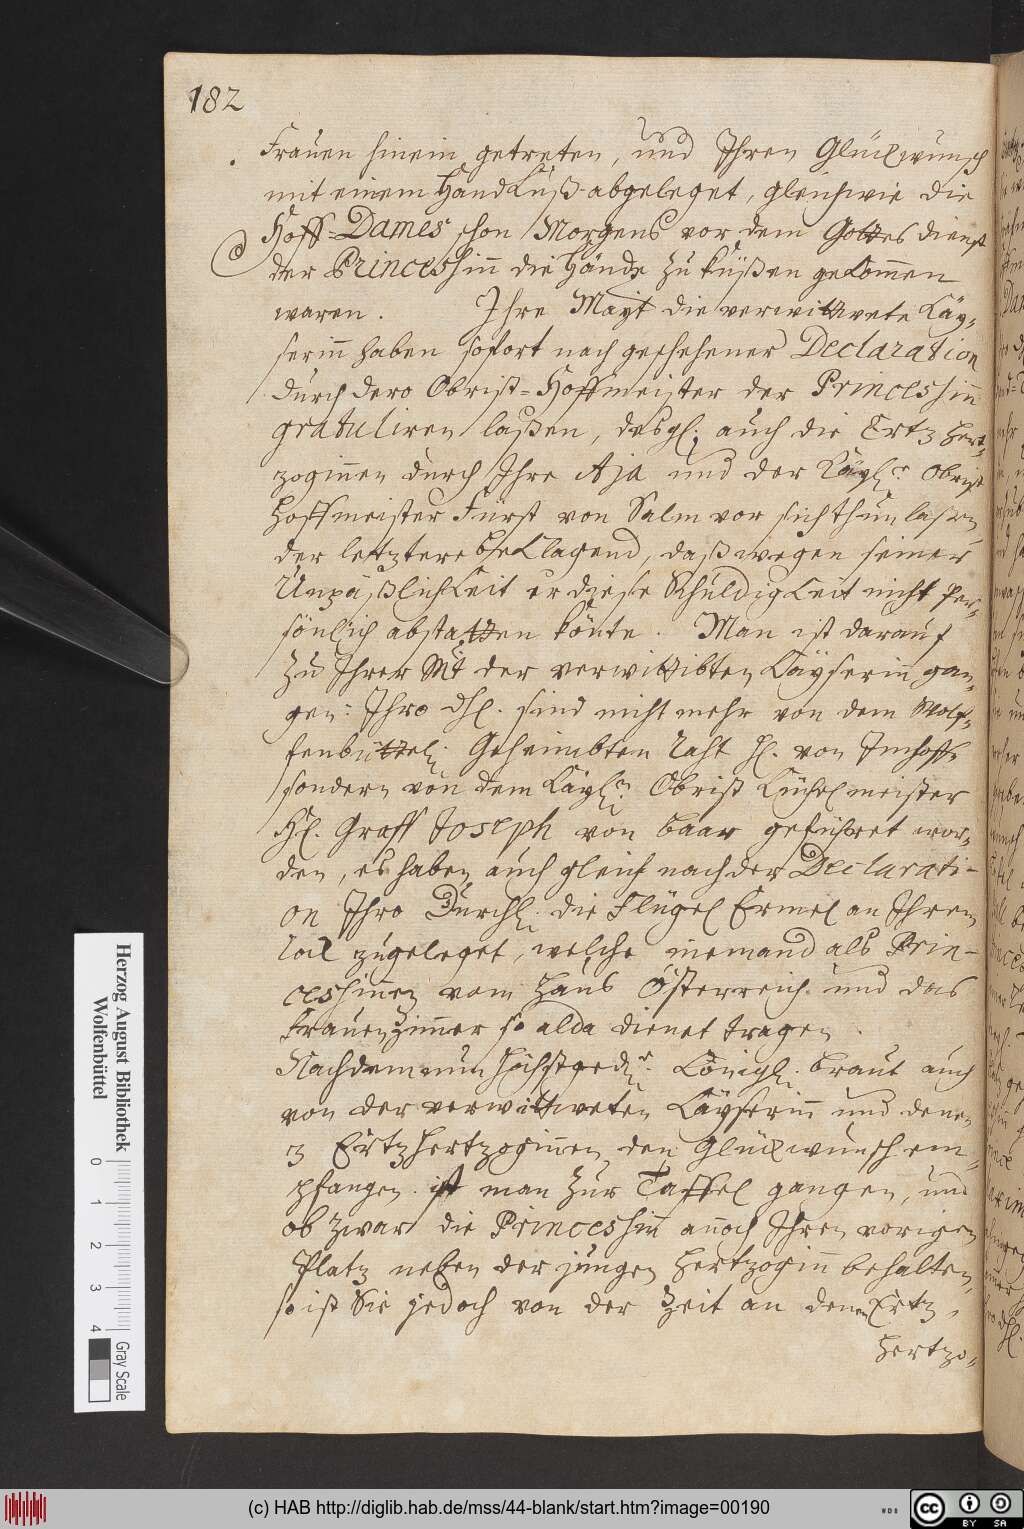 182
Frauen hinein getreten, und Ihren Glückwunsch
mit einem HandKuß abgeleget, gleichwie die
Hoff-Dames schon Morgens vor dem Gottes dienst
der Princeshinn die Hände zu küßen gekommen
waren. Ihre Mayt die verwittwete Käy-
serinn haben sofort nach geschehener Declaration
durch dero Obrist-Hoffmeister der Princeshinn
gratuliren laßen, desgl. auch die Ertz Hert-
zoginnen durch Ihre Aja und der Käyslr Obrist
Hoffmeister Fürst von Salm vor sich thun laßen,
der letztere beklagend, daß wegen seiner
Unpäßlichkeit er diese Schuldigkeit nicht per-
söhnlich abstatten könte. Man ist darauf
zu Ihrer Mt der verwittibten Käyserinn gan-
gen: Ihro dhl. sind nicht mehr von dem Wolf-
fenbüttel. Geheimbten Raht Hl. von Imhoff-
sondern von dem Käyln Obrist Küchelmeister
Hl. Graff Joseph von Baar geführet wor-
den, es haben auch gleich nach der Declarati-
on Ihro Durchl. die Flügel Ermel an Ihrem
Rock zugeleget, welche niemand als Prin-
ceshinnen vom Haus Österreich und das
Frauenzimmer so alda dienet tragen.
Nachdem nun höchstgedr. Königl. Braut auch
von der verwittweten Käyserinn und denen
3 Ertzhertzoginnen den Glückwunsch em-
pfangen ist man zur Taffel gangen, und
ob zwar die Princeshin annoch Ihren vorigen
Platz neben der jungen Hertzoginn behalten,
so ist Sie jedoch von der Zeit an denen Ertz-
Hertzo-
Herzog August Bibliothek
Wolfenbüttel
0 1 2 3 4
Gray Scale
(c) HAB http://diglib.hab.de/mss/44-blank/start.htm?image=00190
WDB
cc BY SA